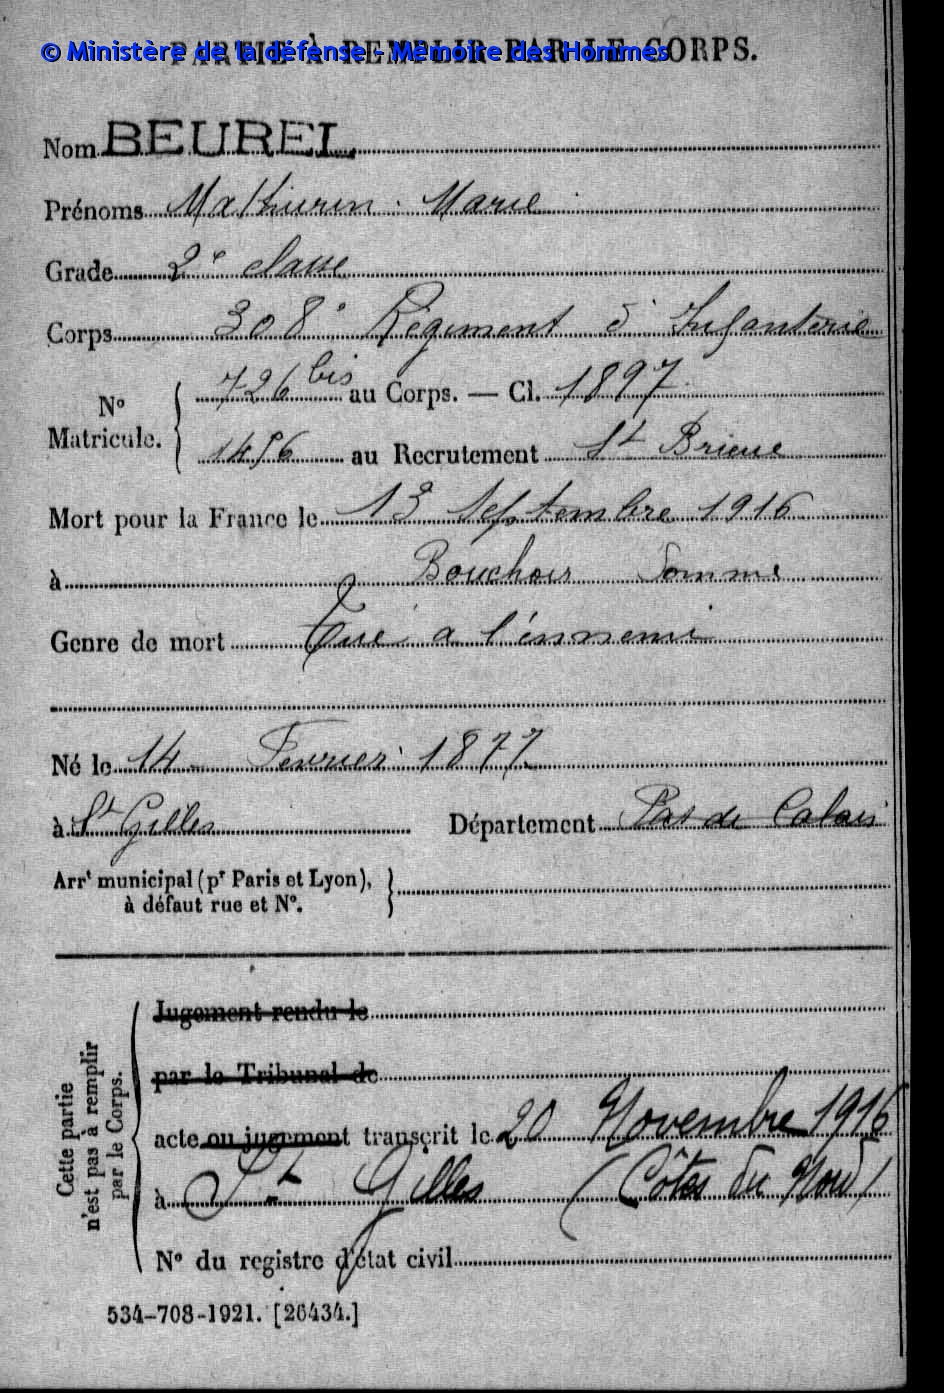 © Ministère de la défense - Mémoire des Hommes
PARTIE À REMPLIR PAR LE CORPS.
Nom BEUREL
Prénoms Mathurin Marie
Grade 2e classe
Corps 308e Régiment d'Infanterie
No Matricule. 726 bis au Corps. — Cl. 1897
1456 au Recrutement St Brieuc
Mort pour la France le 13 Septembre 1916
à Bouchoir Somme
Genre de mort Tué a l'ennemi
Né le 14 Fevrier 1877
à St Gilles Département Pas de Calais
Arrt municipal (pr Paris et Lyon),
à défaut rue et No.
Cette partie
n'est pas à remplir
par le Corps.
Jugement rendu le
par le Tribunal de
acte ou jugement transcrit le 20 Novembre 1916
à St Gilles (Côtes du Nord)
No du registre d'état civil
534-708-1921. [26434.]